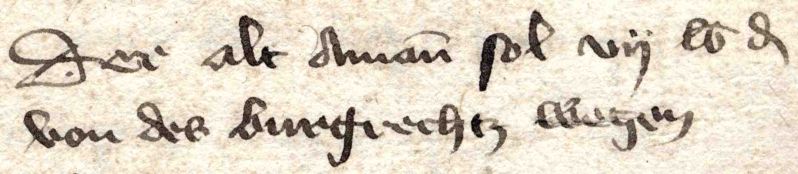 Der alt Aman̄ sol vij lb d
von des burgrechtz wegen